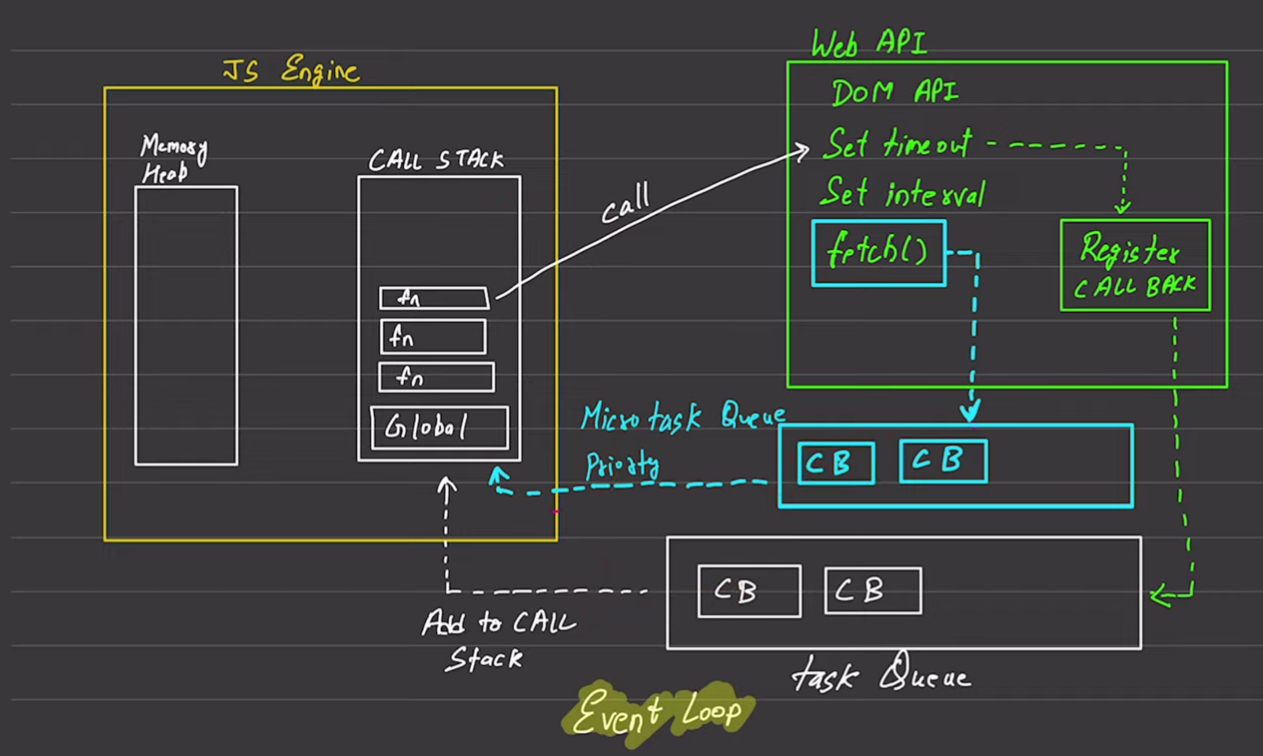 JS Engine
Memory
Heap
CALL STACK
fn
fn
fn
Global
call
Web API
DOM API
Set timeout
Set interval
fetch()
Register
CALL BACK
Micro task Queue
Priorty
CB
CB
CB
CB
Add to CALL
Stack
task Queue
Event Loop